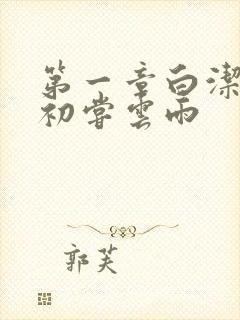 第一章白潔
初嘗雲雨
郭芙